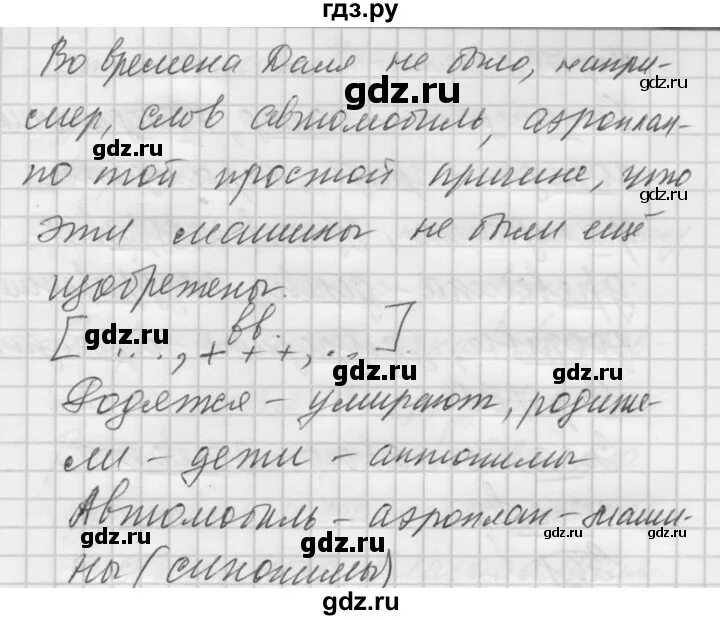 гдз.ру
Во времена Даля не было, напри-
мер, слов автомобиль, аэроплан-
по той простой причине, что
эти машины не были ещё
изобретены.
[ ..., вв. + + +, ... ].
Родятся - умирают, родите-
ли - дети - антонимы
Автомобиль - аэроплан - маши-
ны (синонимы)
gdz.ru
gdz.ru
gdz.ru
gdz.ru
gdz.ru
gdz.ru
gdz.ru
gdz.ru
gdz.ru
gdz.ru
gdz.ru
gdz.ru